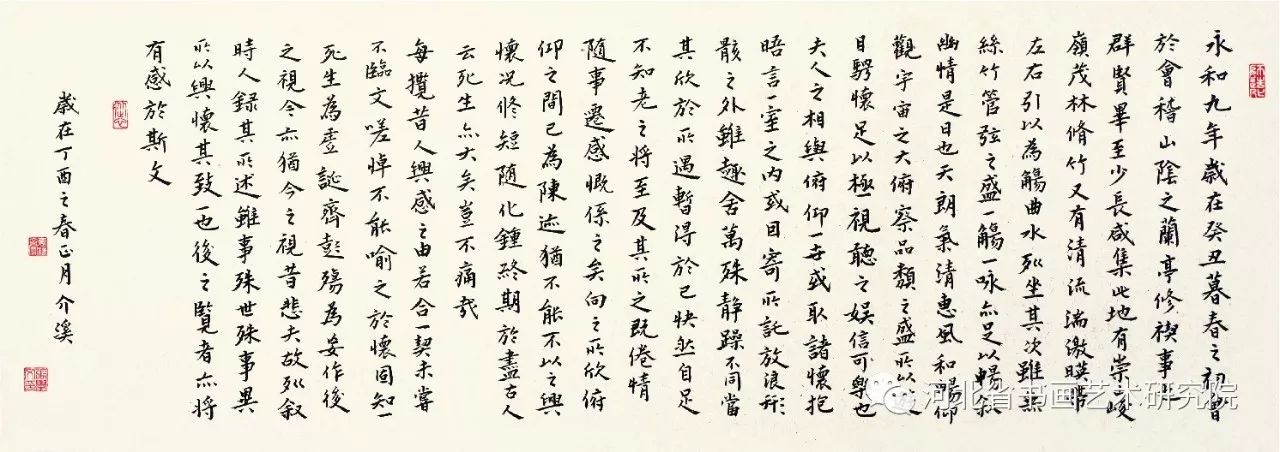 永和九年歲在癸丑暮春之初會
於會稽山陰之蘭亭修禊事也
群賢畢至少長咸集此地有崇山峻
嶺茂林脩竹又有清流湍激暎帶
左右引以為觴曲水列坐其次雖無
絲竹管弦之盛一觴一咏亦足以暢敘
幽情是日也天朗氣清惠風和暢仰
觀宇宙之大俯察品類之盛所以遊
目騁懷足以極視聽之娛信可樂也
夫人之相與俯仰一世或取諸懷抱
晤言一室之內或因寄所託放浪形
骸之外雖趣舍萬殊靜躁不同當
其欣於所遇暫得於己快然自足
不知老之將至及其所之既倦情
隨事遷感慨係之矣向之所欣俯
仰之間已為陳迹猶不能不以之興
懷況修短隨化鍾終期於盡古人
云死生亦大矣豈不痛哉
每攬昔人興感之由若合一契未嘗
不臨文嗟悼不能喻之於懷固知一
死生為虛誕齊彭殤為妄作後
之視今亦猶今之視昔悲夫故列敘
時人錄其所述雖事殊世殊事異
所以興懷其致一也後之覽者亦將
有感於斯文
歲在丁酉之春正月介溪
河北省书画艺术研究院